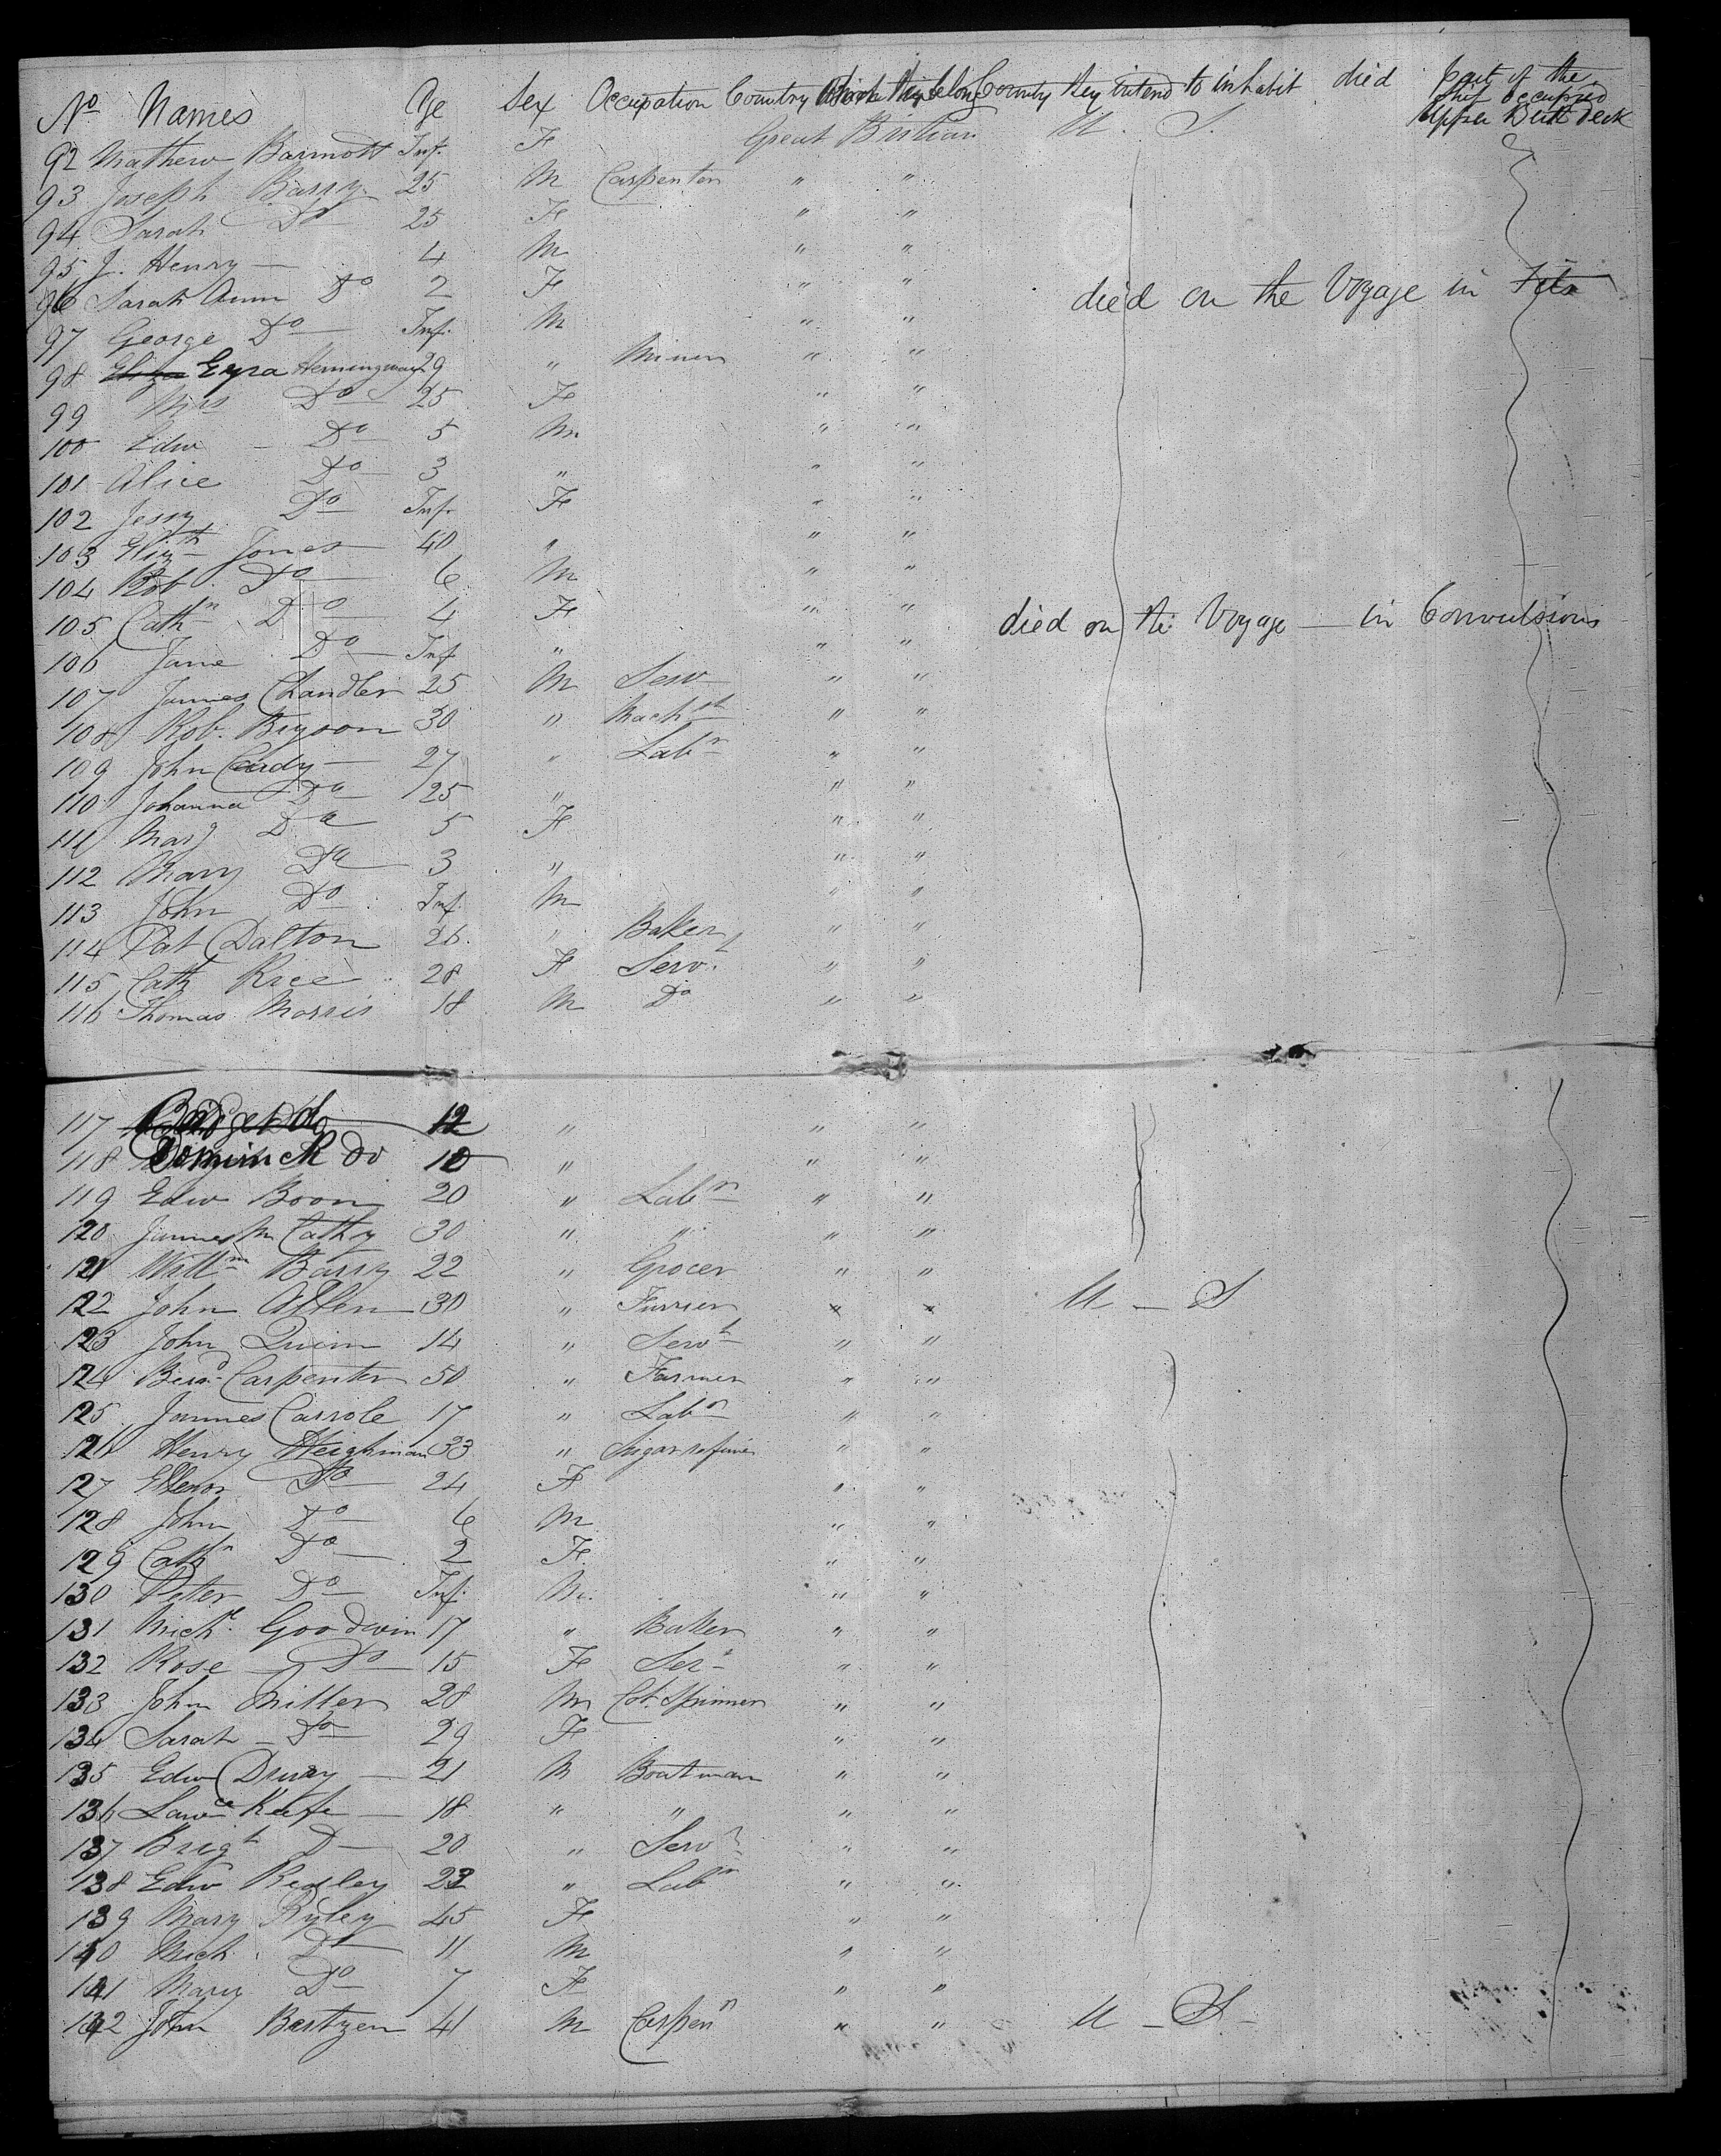 No Names Age Sex Occupation Country Which they belong Country they intend to inhabit died part of the
ship occupied
Upper Deck
92 Mathew Barmott Inf. F Great Britian U. S.
93 Joseph Barry 25 M Carpenter " "
94 Sarah Do 25 F " "
95 J. Henry — 4 M " "
96 Sarah Ann Do 2 F " " died on the Voyage in Fits
97 George Do Inf. M " "
98 Ezra Hemingway 29 " Miner " "
99 Mrs Do 25 F " "
100 Edw Do 5 M " "
101 Alice Do 3 " " "
102 Jessy Do Inf. F " "
103 Elizth Jones 40 " " "
104 Rob Do 6 M " "
105 Cathn Do 4 F " " died on the Voyage — in Convulsions
106 Jane Do Inf " " "
107 James Chandler 25 M Serv " "
108 Rob. Bryson 30 " Machst " "
109 John Cardy 27 " Labr " "
110 Johanna Do 25 " " "
111 Marg Do 5 F " "
112 Mary Do 3 " " "
113 John Do Inf. M " "
114 Pat Dalton 26 " Baker " "
115 Cath Rice 28 F Servt " "
116 Thomas Morris 18 M Do " "
117 Bridget do 12 " " "
118 Dominick Do 10 " " "
119 Edw Boon 20 " Labr " "
120 James McCathy 30 " " " "
121 Willm Barry 22 " Grocer " "
122 John Allen 30 " Furrier " " U — S
123 John Quinn 14 " Servt " "
124 Bernd Carpenter 50 " Farmer " "
125 James Carrole 17 " Labr " "
126 Henry Heighman 33 " Sugar refiner " "
127 Ellenor Do 24 F " "
128 John Do 6 M " "
129 Cathn Do 2 F " "
130 Peter Do Inf. M. " "
131 Michl Goodwin 17 " Baker " "
132 Rose Do 15 F Sert " "
133 John Miller 28 M Cot. Spinner " "
134 Sarah Do 29 F " "
135 Edw Drury 21 M Boatman " "
136 Lawce Keefe 18 " " " "
137 Brigt D— 20 " Servt " "
138 Edw Begley 23 " Labr " "
139 Mary Ryley 45 F " "
140 Mich Do 11 M " "
141 Mary Do 7 F " "
142 John Bertzen 41 M Carpenr " " U — S